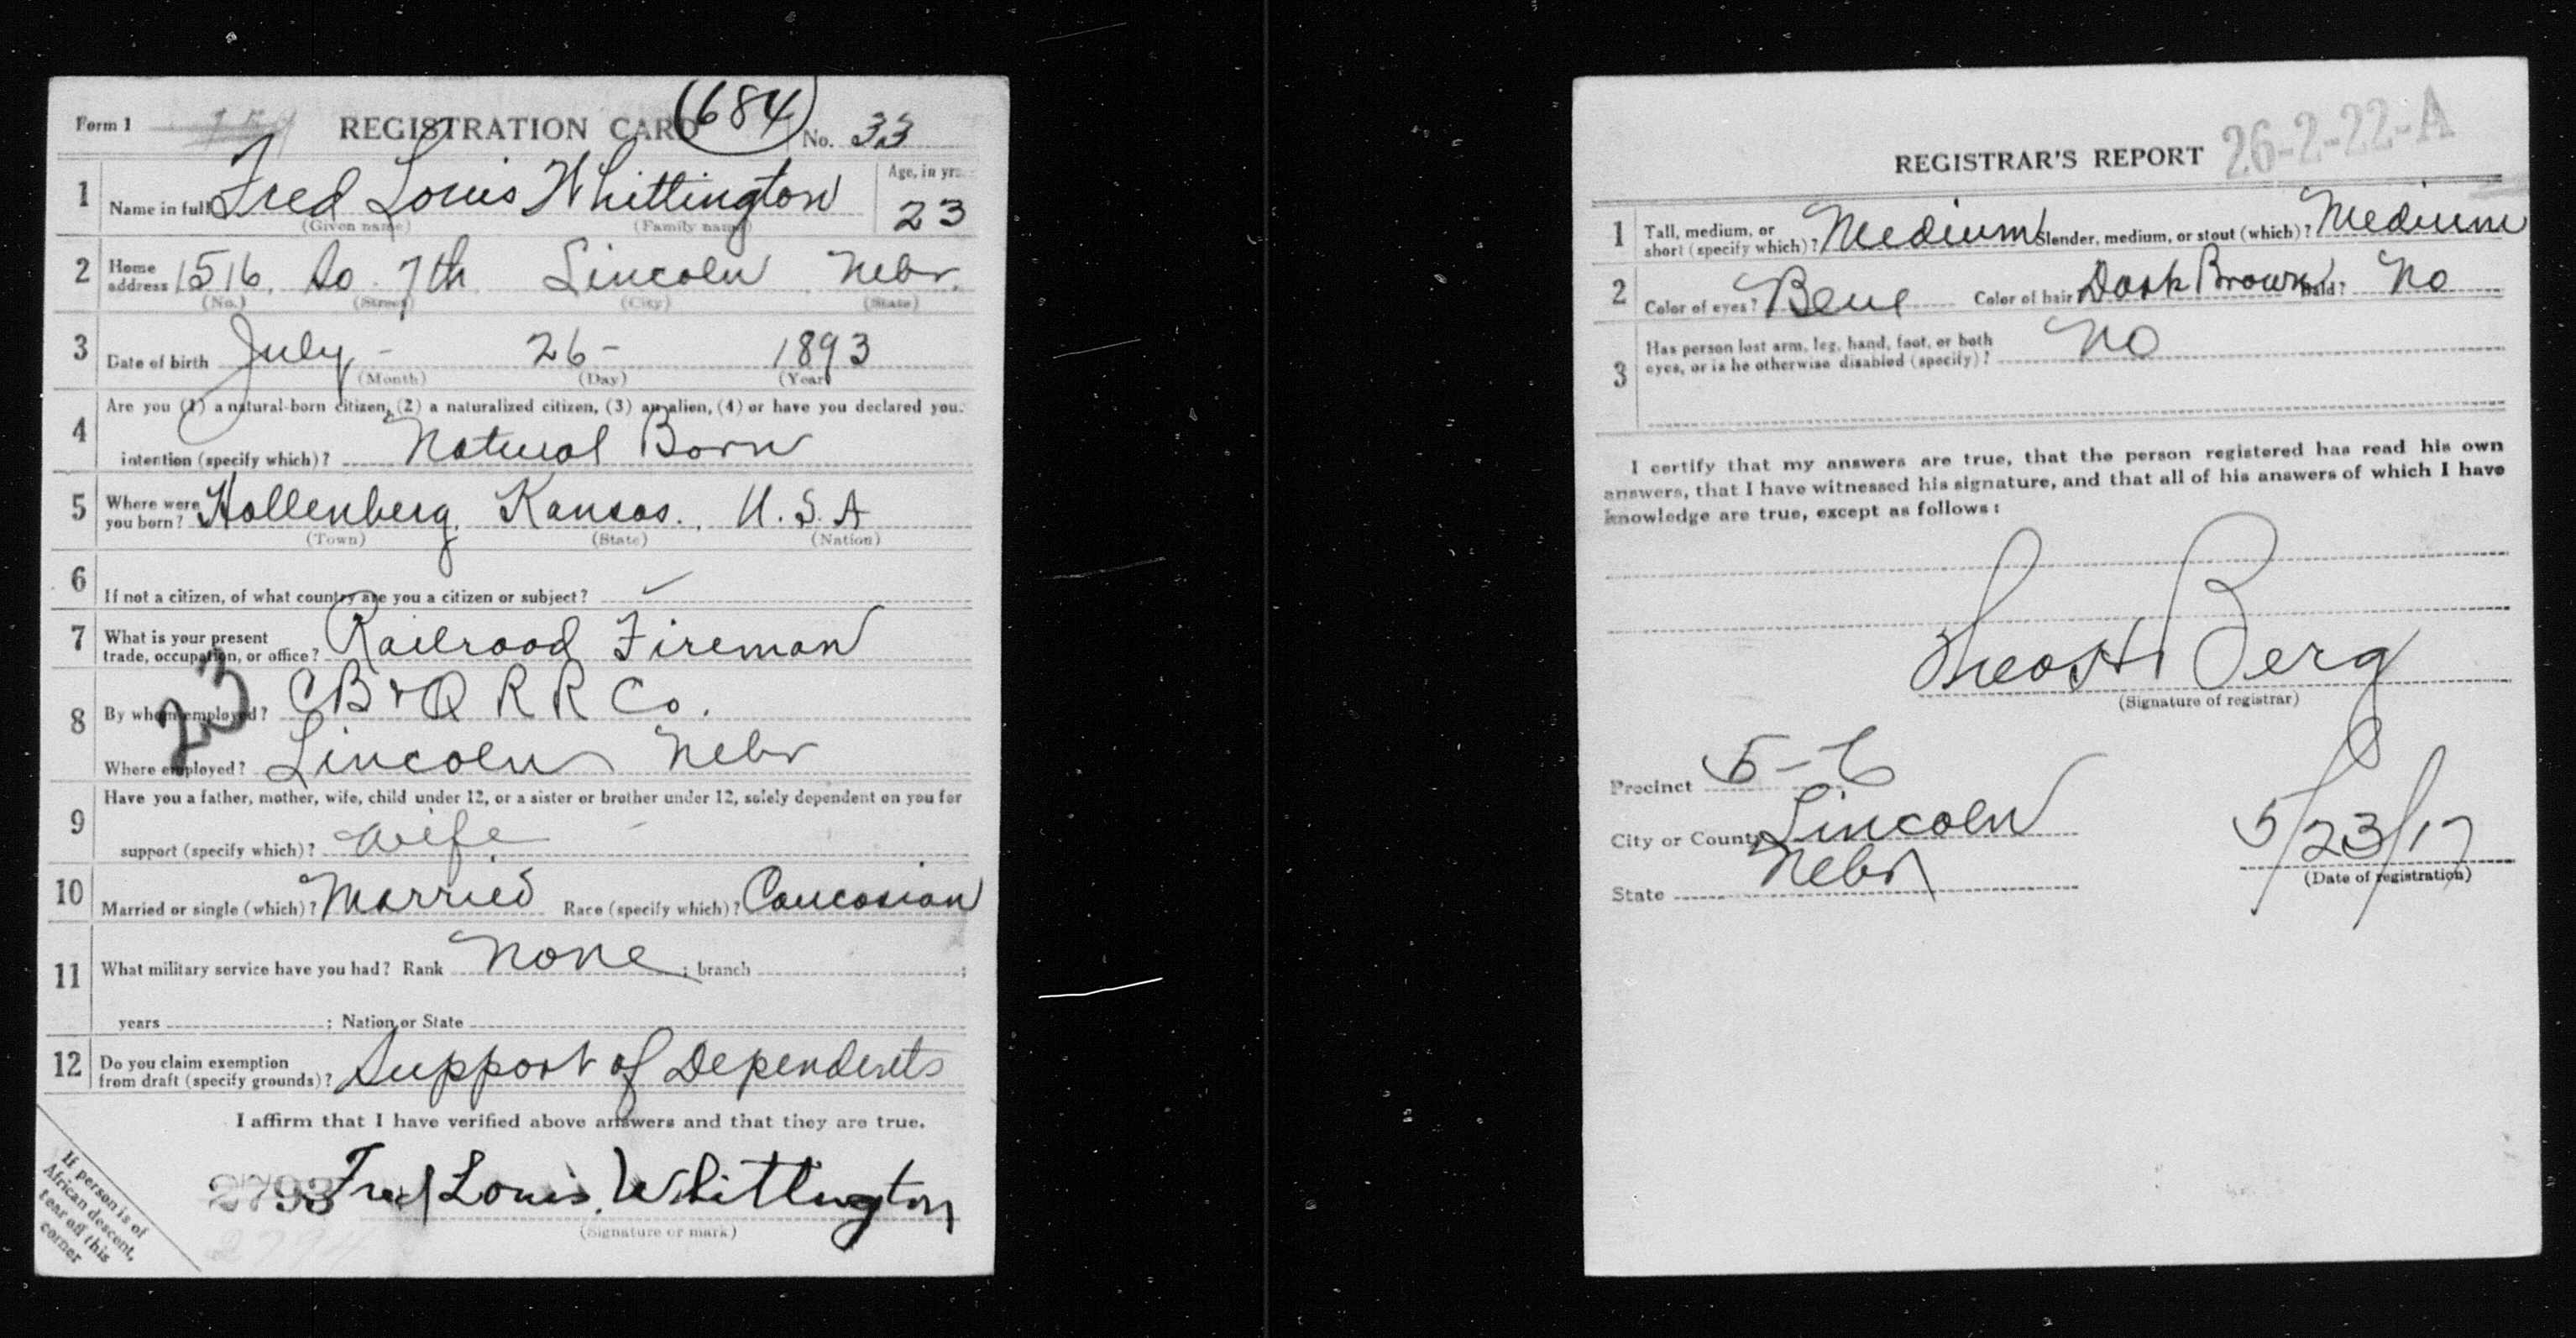 Form 1 REGISTRATION CARD (684) No. 33
1 Name in full Fred Louis Whittington Age, in yrs. 23
(Given name) (Family name)
2 Home address 1516 So 7th Lincoln Nebr.
(No.) (Street) (City) (State)
3 Date of birth July - 26 - 1893
(Month) (Day) (Year)
Are you (1) a natural-born citizen, (2) a naturalized citizen, (3) an alien, (4) or have you declared your
4 intention (specify which)? Natural Born
5 Where were you born? Hollenberg, Kansas., U.S.A
(Town) (State) (Nation)
6 If not a citizen, of what country are you a citizen or subject? ✓
7 What is your present trade, occupation, or office? Railroad Fireman
8 By whom employed? CB+Q R R Co.
23
Where employed? Lincoln Nebr
Have you a father, mother, wife, child under 12, or a sister or brother under 12, solely dependent on you for
9 support (specify which)? Wife
10 Married or single (which)? Married Race (specify which)? Caucasian
11 What military service have you had? Rank None ; branch ;
years ; Nation or State
12 Do you claim exemption from draft (specify grounds)? Support of Dependents
I affirm that I have verified above answers and that they are true.
2793 Fred Louis Whittington
(Signature or mark)
If person is of
African descent,
tear off this
corner
REGISTRAR'S REPORT 26-2-22-A
1 Tall, medium, or short (specify which)? Medium Slender, medium, or stout (which)? Medium
2 Color of eyes? Blue Color of hair Dark Brown Bald? No
3 Has person lost arm, leg, hand, foot, or both eyes, or is he otherwise disabled (specify)? No
I certify that my answers are true, that the person registered has read his own
answers, that I have witnessed his signature, and that all of his answers of which I have
knowledge are true, except as follows:
Theo H Berg
(Signature of registrar)
Precinct 5-C
City or County Lincoln 5/23/17
State Nebr (Date of registration)